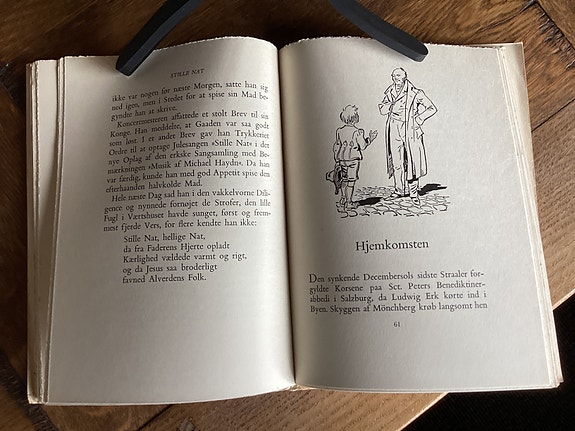 STILLE NAT
ikke var nogen før næste Morgen, satte han sig
ned igen, men i Stedet for at spise sin Mad be-
gyndte han at skrive.
Koncertmesteren affattede et stolt Brev til sin
Konge. Han meddelte, at Gaaden var saa godt
som løst. I et andet Brev gav han Trykkeriet
Ordre til at optage Julesangen »Stille Nat« i det
nye Oplag af den erkske Sangsamling med Be-
mærkningen »Musik af Michael Haydn«. Da han
var færdig, kunde han med god Appetit spise den
efterhaanden halvkolde Mad.
Hele næste Dag sad han i den vakkelvorne Dili-
gence og nynnede fornøjet de Strofer, den lille
Fugl i Værtshuset havde sunget, først og frem-
mest fjerde Vers, for flere kendte han ikke:
Stille Nat, hellige Nat,
da fra Faderens Hjerte opladt
Kærlighed vældede varmt og rigt,
og da Jesus saa broderligt
favned Alverdens Folk.
Hjemkomsten
Den synkende Decembersols sidste Straaler for-
gyldte Korsene paa Sct. Peters Benediktiner-
abbedi i Salzburg, da Ludwig Erk kørte ind i
Byen. Skyggen af Mönchberg krøb langsomt hen
61